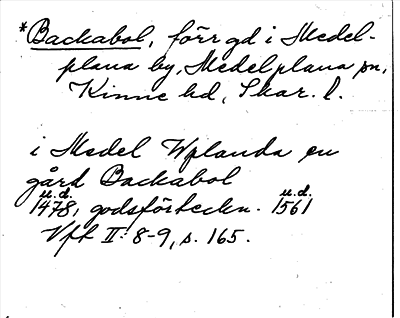 *Backabol, förr gd i Medel-
plana by, Medelplana sn,
Kinne hd, Skar. l.
i Medel Wplanda en
gård Backabol
u.d. u.d.
1478, godsförteckn. 1561
Vft II: 8-9, s. 165.